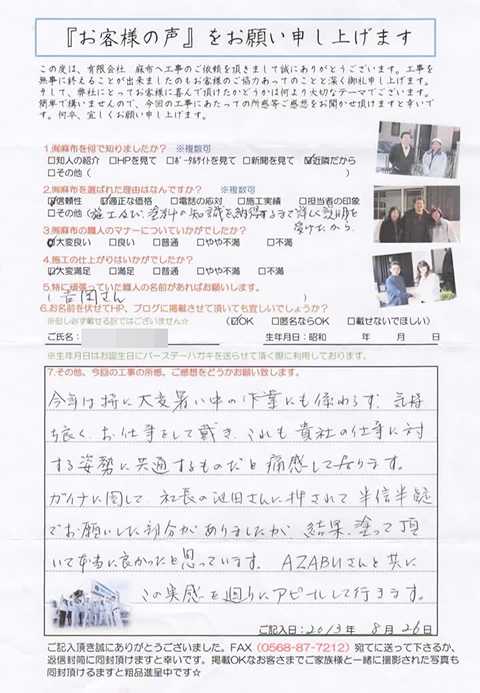 『お客様の声』をお願い申し上げます
この度は、有限会社 麻布へ工事のご依頼を頂きまして誠にありがとうございます。工事を
無事に終えることが出来ましたのもお客様のご協力あってのことと深く御礼申し上げます。
そして、弊社にとってお客様に喜んで頂けたかどうかは何より大切なテーマでございます。
簡単で構いませんので、今回の工事にあたっての所感等ご感想をお聞かせ頂けますと幸いです。
何卒、宜しくお願い申し上げます。
1.㈲麻布を何で知りましたか? ※複数可
□知人の紹介 □HPを見て □ポータルサイトを見て □新聞を見て ☑近隣だから
□その他( )
2.㈲麻布を選ばれた理由はなんですか? ※複数可
☑信頼性 ☑適正な価格 □電話の応対 □施工実績 □担当者の印象
□その他(施工及び、塗料の知識を納得するまで詳しく説明を
受けたから。
3.㈲麻布の職人のマナーについていかがでしたか?
☑大変良い □良い □普通 □やや不満 □不満
4.施工の仕上がりはいかがでしたか?
☑大変満足 □満足 □普通 □やや不満 □不満
5.特に頑張っていた職人の名前があればお願いします。
(吉岡さん )
6.お名前を伏せてHP、ブログに掲載させて頂いても宜しいでしょうか?
※但し必ず載せる訳ではございません☆ (☑OK □匿名ならOK □載せないでほしい)
ご氏名: 生年月日:昭和 年 月 日
※生年月日はお誕生日にバースデーハガキを送らせて頂く際に利用しております。
7.その他、今回の工事の所感、ご感想をどうかお願い致します。
今年は特に大変暑い中の作業にも係わらず、気持
ち良く、お仕事をして戴き、これも貴社の仕事に対
する姿勢に共通するものだと痛感しております。
ガイナに関して、社長の池田さんに押されて、半信半疑
でお願いした部分がありましたが、結果、塗って頂
いて本当に良かったと思っています。AZABUさんと共に
この実感を廻りにアピールして行きます。
ご記入日:2013年 8月 26日
ご記入頂き誠にありがとうございました。FAX(0568-87-7212)宛てに送って下さるか、
返信封筒に同封頂けますと幸いです。掲載OKなお客さまでご家族様と一緒に撮影された写真も
同封頂けるますと粗品進呈中です☆